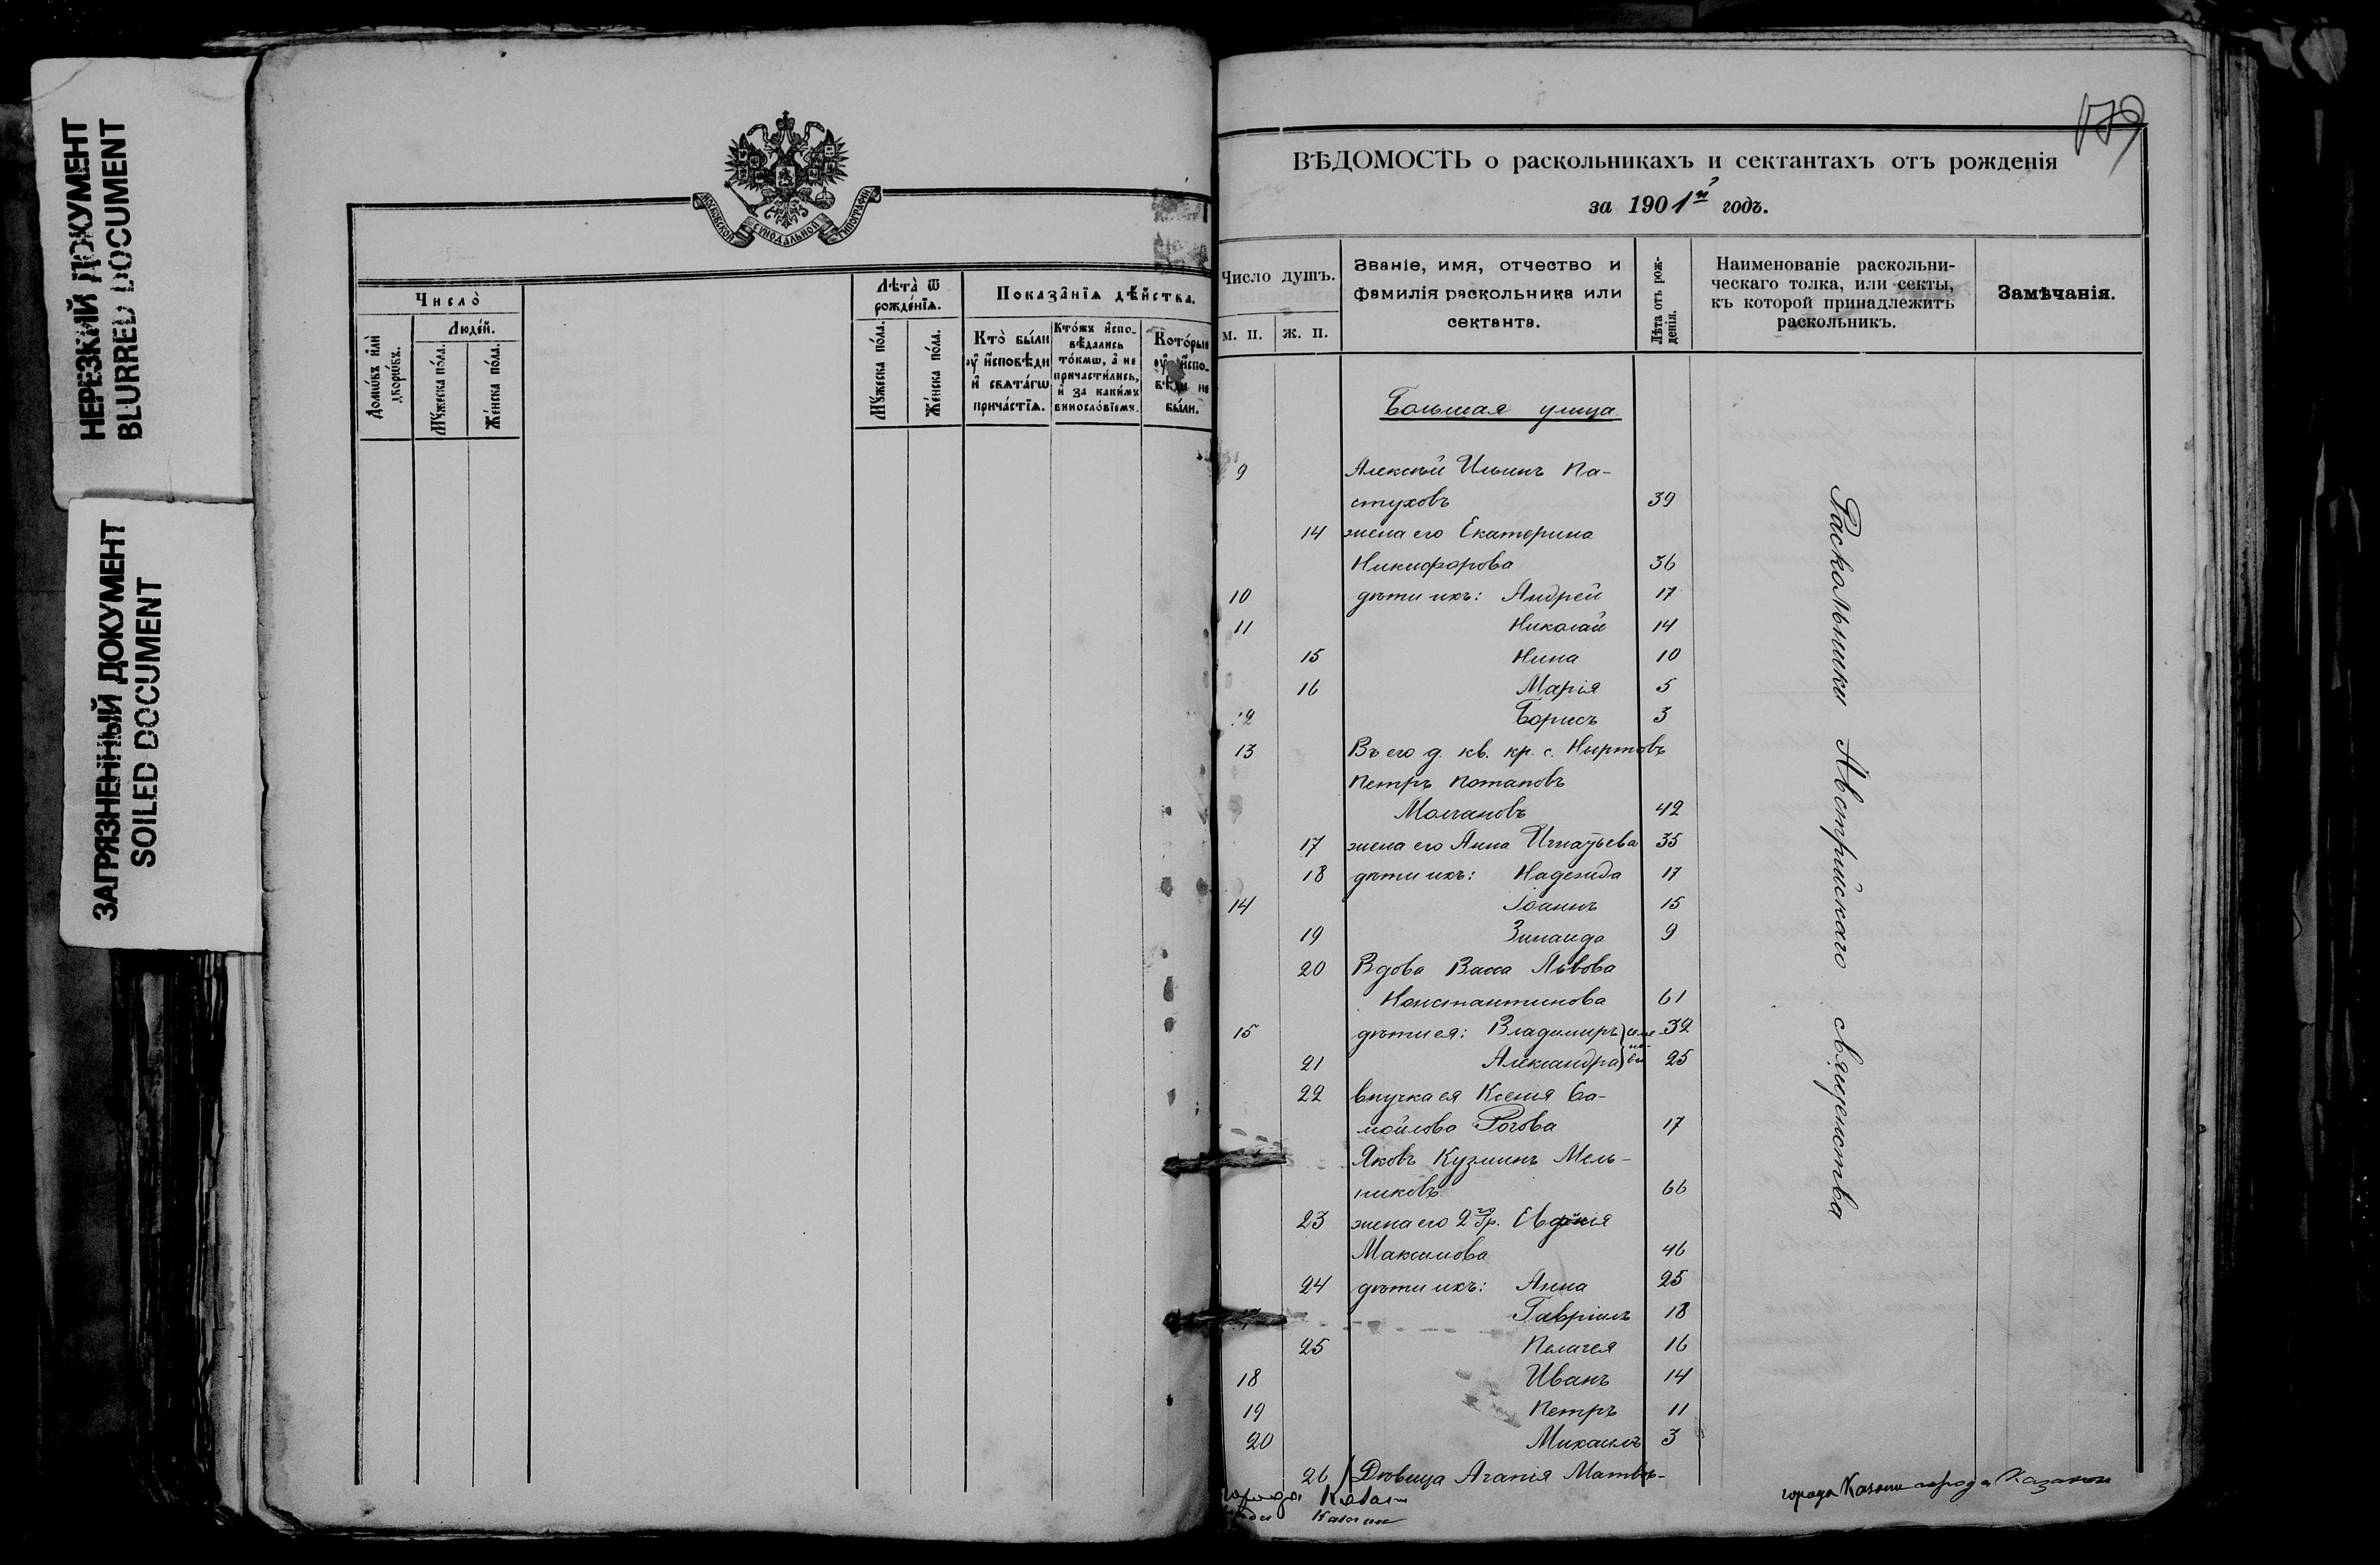 НЕРЕЗКИЙ ДОКУМЕНТ
BLURRED DOCUMENT
ЗАГРЯЗНЕННЫЙ ДОКУМЕНТ
SOILED DOCUMENT
МОСКОВСКОЙ СѴНОДАЛЬНОЙ ТИПОГРАФІИ
Число̀
Домѡ́въ и҆лѝ дворѡ́въ.
Люде́й.
Мꙋ́жеска по́ла.
Же́нска по́ла.
Лѣ́та ѿ рожде́нїѧ.
Мꙋ́жеска по́ла.
Же́нска по́ла.
Показа̑нїѧ дѣ́йства.
Кто̀ бы́ли ᲂу҆ и҆сповѣ́ди и҆ свѧта́гѡ прича́стїѧ.
Кто́жъ и҆спо-
вѣ́дались
то́кмѡ, а҆ не
причасти́лись,
и҆ за каки́мъ
виносло́вїемъ.
Кото́рые
ᲂу҆ и҆спо-
вѣ́ди не
бы́ли.
179
ВѢДОМОСТЬ о раскольникахъ и сектантахъ отъ рожденія
за 1901й годъ.
Число душъ.
м. п. ж. п.
Званіе, имя, отчество и
фамилія раскольника или
сектанта.
Лѣта отъ рож-
денія.
Наименованіе раскольни-
ческаго толка, или секты,
къ которой принадлежитъ
раскольникъ.
Замѣчанія.
Большая улица
9 Алексѣй Ильинъ Па-
стуховъ 39
14 жена его Екатерина
Никифорова 36
10 дѣти ихъ: Андрей 17
11 Николай 14
15 Нина 10
16 Марія 5
12 Борисъ 3
13 Въ его д. кв. кр. с. Ныртовъ
Петръ Потаповъ
Молчановъ 42
17 жена его Анна Игнатьева 35
18 дѣти ихъ: Надежда 17
14 Іоаннъ 15
19 Зинаида 9
20 Вдова Васса Львова
Константинова 61
15 дѣти ея: Владимиръ 32
21 Александра 25
22 внучка ея Ксенія Са-
мойлова Рогова 17
Яковъ Кузминъ Мель-
никовъ 66
23 жена его 2го бр.
Максимова 46
24 дѣти ихъ: Анна 25
Гавріилъ 18
25 Пелагея 16
18 Иванъ 14
19 Петръ 11
20 Михаилъ 3
26 Дѣвица Агапія Матвѣ-
Раскольники Австрійскаго священства
города Казани
Казани
города Казани города Казани